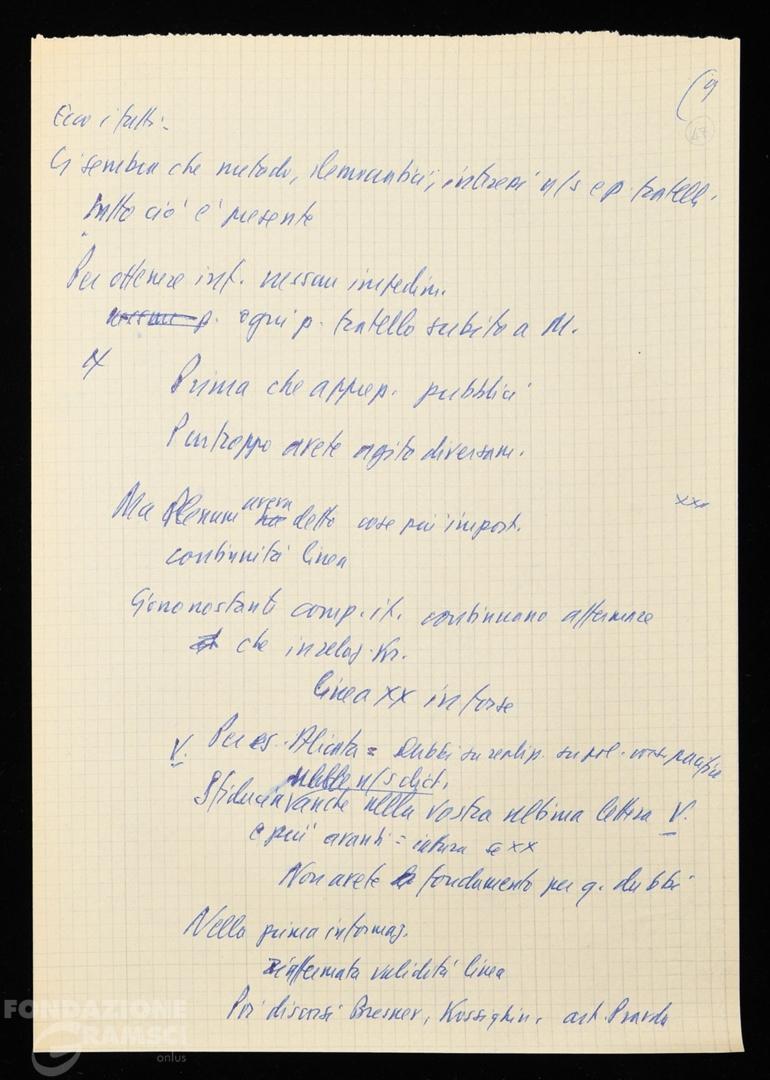 (9
47
Ecco i fatti:
Ci sembra che metodo, democratici, interessi n/s e p. fratelli.
tutto ciò è presente
Per ottenere inf. nessun impedim.
p. ogni p. fratello subito a M.
x
Prima che apprep. pubblici
Purtroppo avete agito diversam.
Ma Plenum aveva detto cose più import.
xxo
continuità linea
Ciononostanti comp. it. continuano affermare
che in relaz. Kr.
linea xx in forse
V. Per es. Alicata = Dubbi su pol. coes. pacifica
nelle n/s dich.
Sfiducia anche nella vostra ultima lettera V.
e più avanti = intura se xx
Non avete fondamento per q. dubbi
Nella prima informaz.
riaffermata validità linea
Poi discorsi Bresnev, Kossighin, art. Pravda
FONDAZIONE
GRAMSCI
onlus